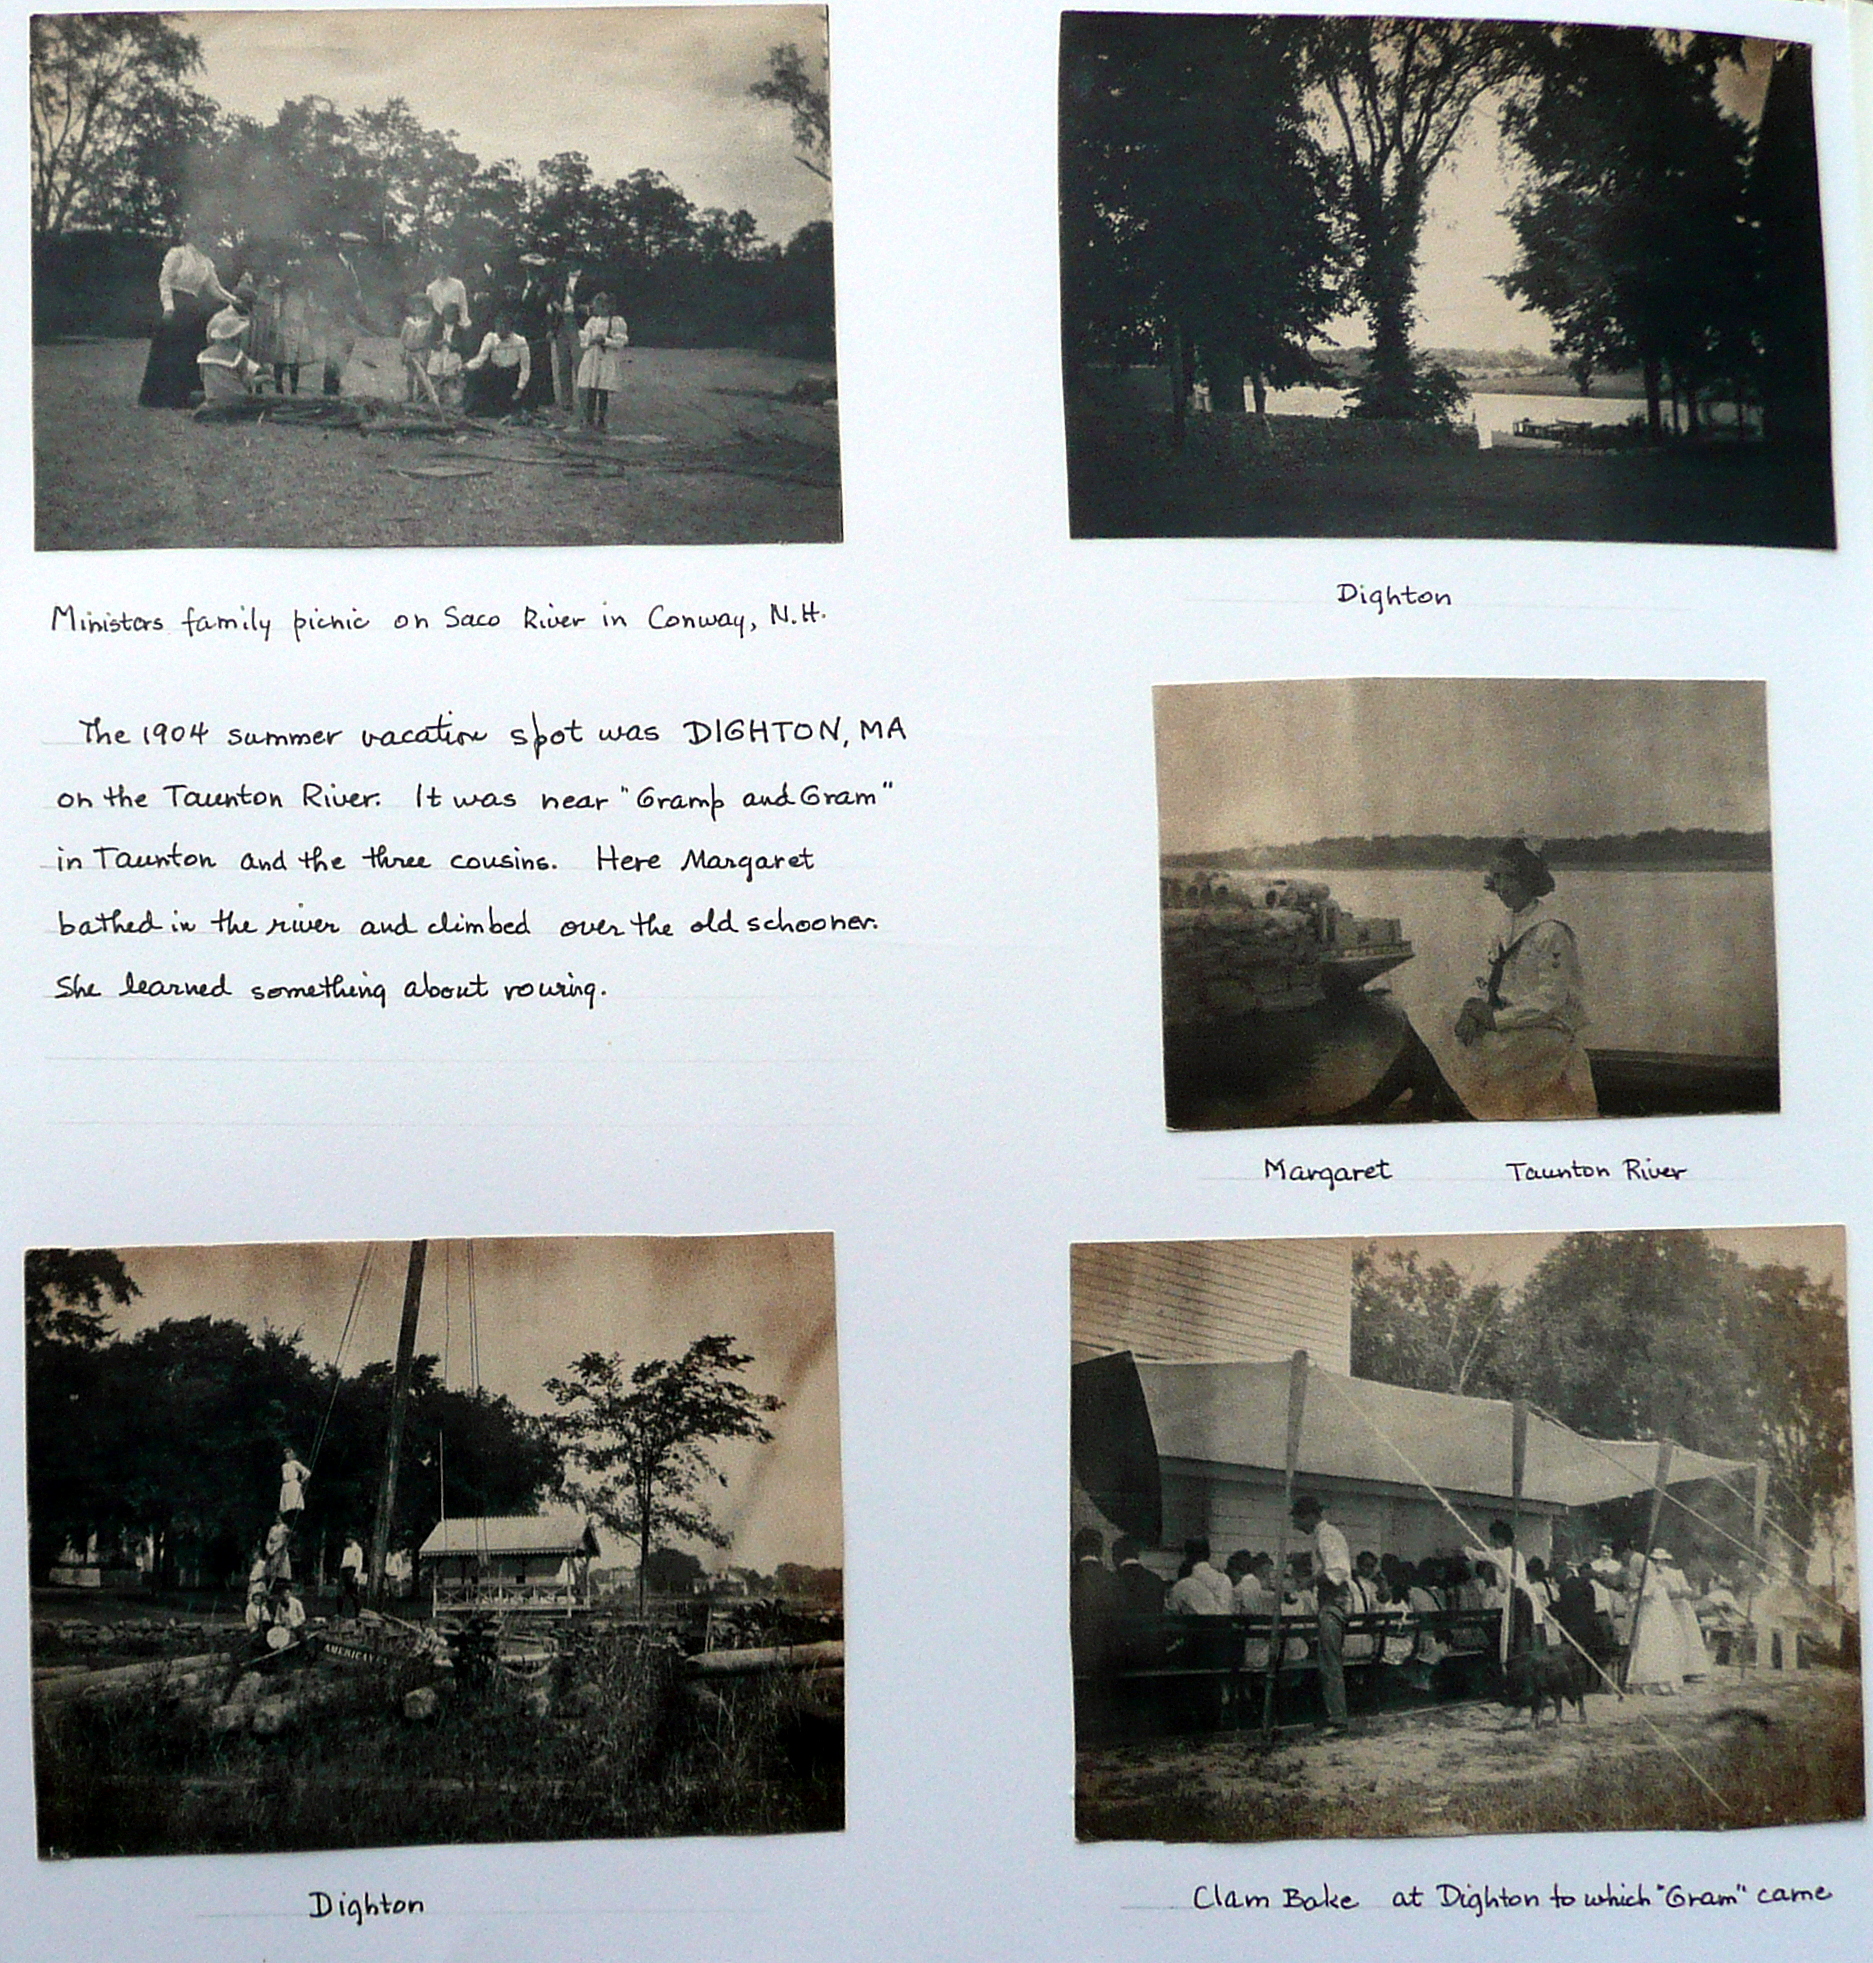 Ministers family picnic on Saco River in Conway, N.H.
The 1904 summer vacation spot was DIGHTON, MA
on the Taunton River. It was near "Gramp and Gram"
in Taunton and the three cousins. Here Margaret
bathed in the river and climbed over the old schooner.
She learned something about rowing.
Dighton
Margaret Taunton River
AMERICAN
Dighton
Clam Bake at Dighton to which "Gram" came